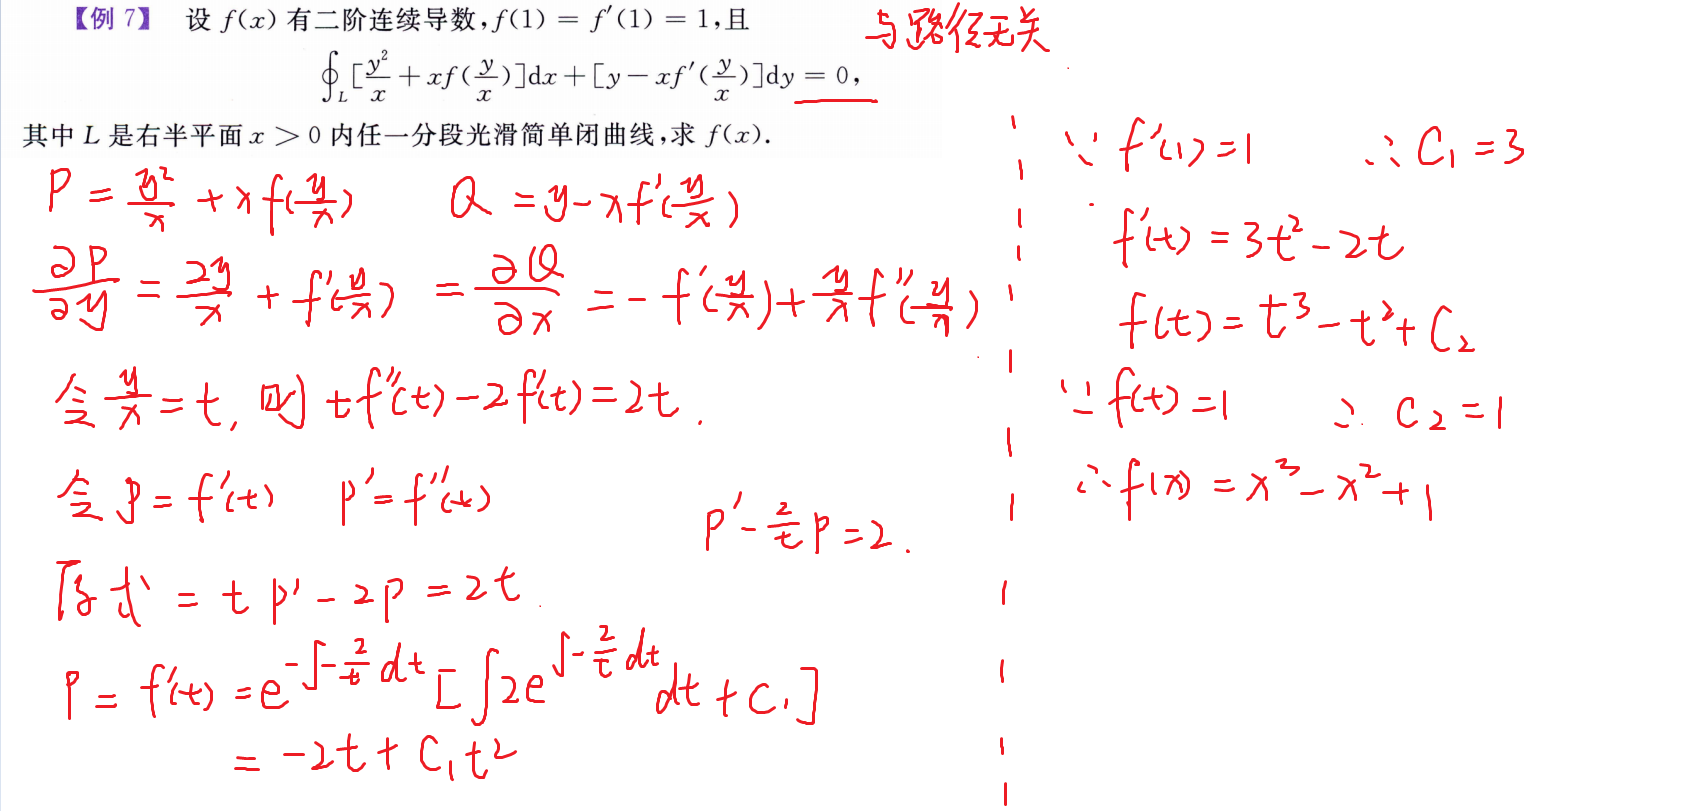 【例 7】 设 f(x) 有二阶连续导数,f(1) = f′(1) = 1,且
∮_L [y²/x + xf(y/x)]dx + [y − xf′(y/x)]dy = 0,
其中 L 是右半平面 x > 0 内任一分段光滑简单闭曲线,求 f(x).
与路径无关
P = y²/x + xf(y/x) Q = y − xf′(y/x)
∂P/∂y = 2y/x + f′(y/x) = ∂Q/∂x = − f′(y/x) + y/x f″(y/x)
令 y/x = t, 则 tf″(t) − 2f′(t) = 2t.
令 p = f′(t) p′ = f″(t)
p′ − 2/t p = 2.
原式 = t p′ − 2p = 2t.
P = f′(t) = e^{−∫−2/t dt} [∫2e^{∫−2/t dt} dt + C₁]
= −2t + C₁t²
∵ f′(1) = 1 ∴ C₁ = 3
f′(t) = 3t² − 2t
f(t) = t³ − t² + C₂
∵ f(t) = 1 ∴ C₂ = 1
∴ f(x) = x³ − x² + 1